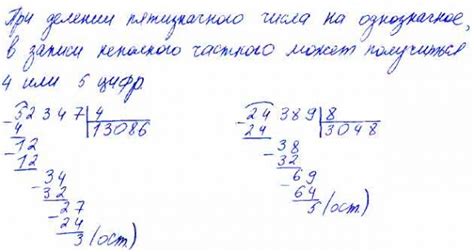 При делении пятизначного числа на однозначное,
в записи неполного частного может получиться
4 или 5 цифр.
52347 | 4
4 | 13086
- 12
12
- 34
32
- 27
24
3 (ост.)
24389 | 8
- 24 | 3048
- 38
32
- 69
64
5 (ост.)